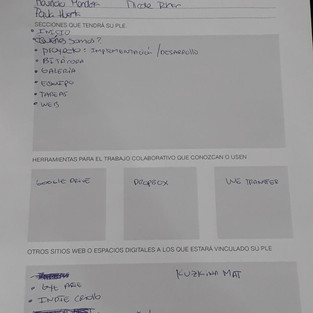 SECCIONES QUE TENDRÁ SU PLE
• INICIO
• ¿QUIENES SOMOS?
• PROYECTOS: IMPLEMENTACIÓN / DESARROLLO
• BITÁCORA
• GALERÍA
• EQUIPO
• TAREAS
• WEB
HERRAMIENTAS PARA EL TRABAJO COLABORATIVO QUE CONOZCAN O USEN
GOOGLE DRIVE
DROPBOX
WE TRANSFER
OTROS SITIOS WEB O ESPACIOS DIGITALES A LOS QUE ESTARÁ VINCULADO SU PLE
KUZKINA MAT
• INDIE CRIOLLO